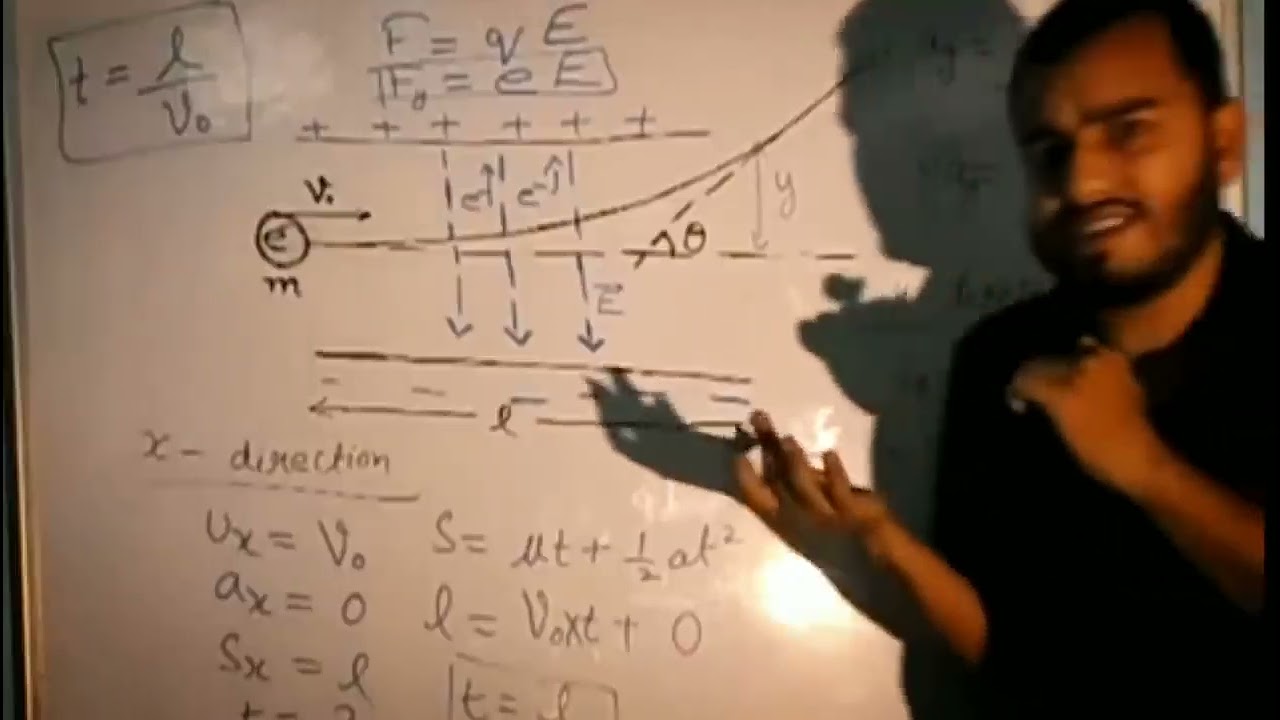 t = l / V₀
F = q E
F_y = e E
+ + + + + +
V₀
e⁻ e⁻
e⁻
m
θ
y
E
- - - - -
l
x - direction
u_x = V₀
S = ut + 1/2 at²
a_x = 0
l = V₀xt + 0
S_x = l
t = l
t = ?